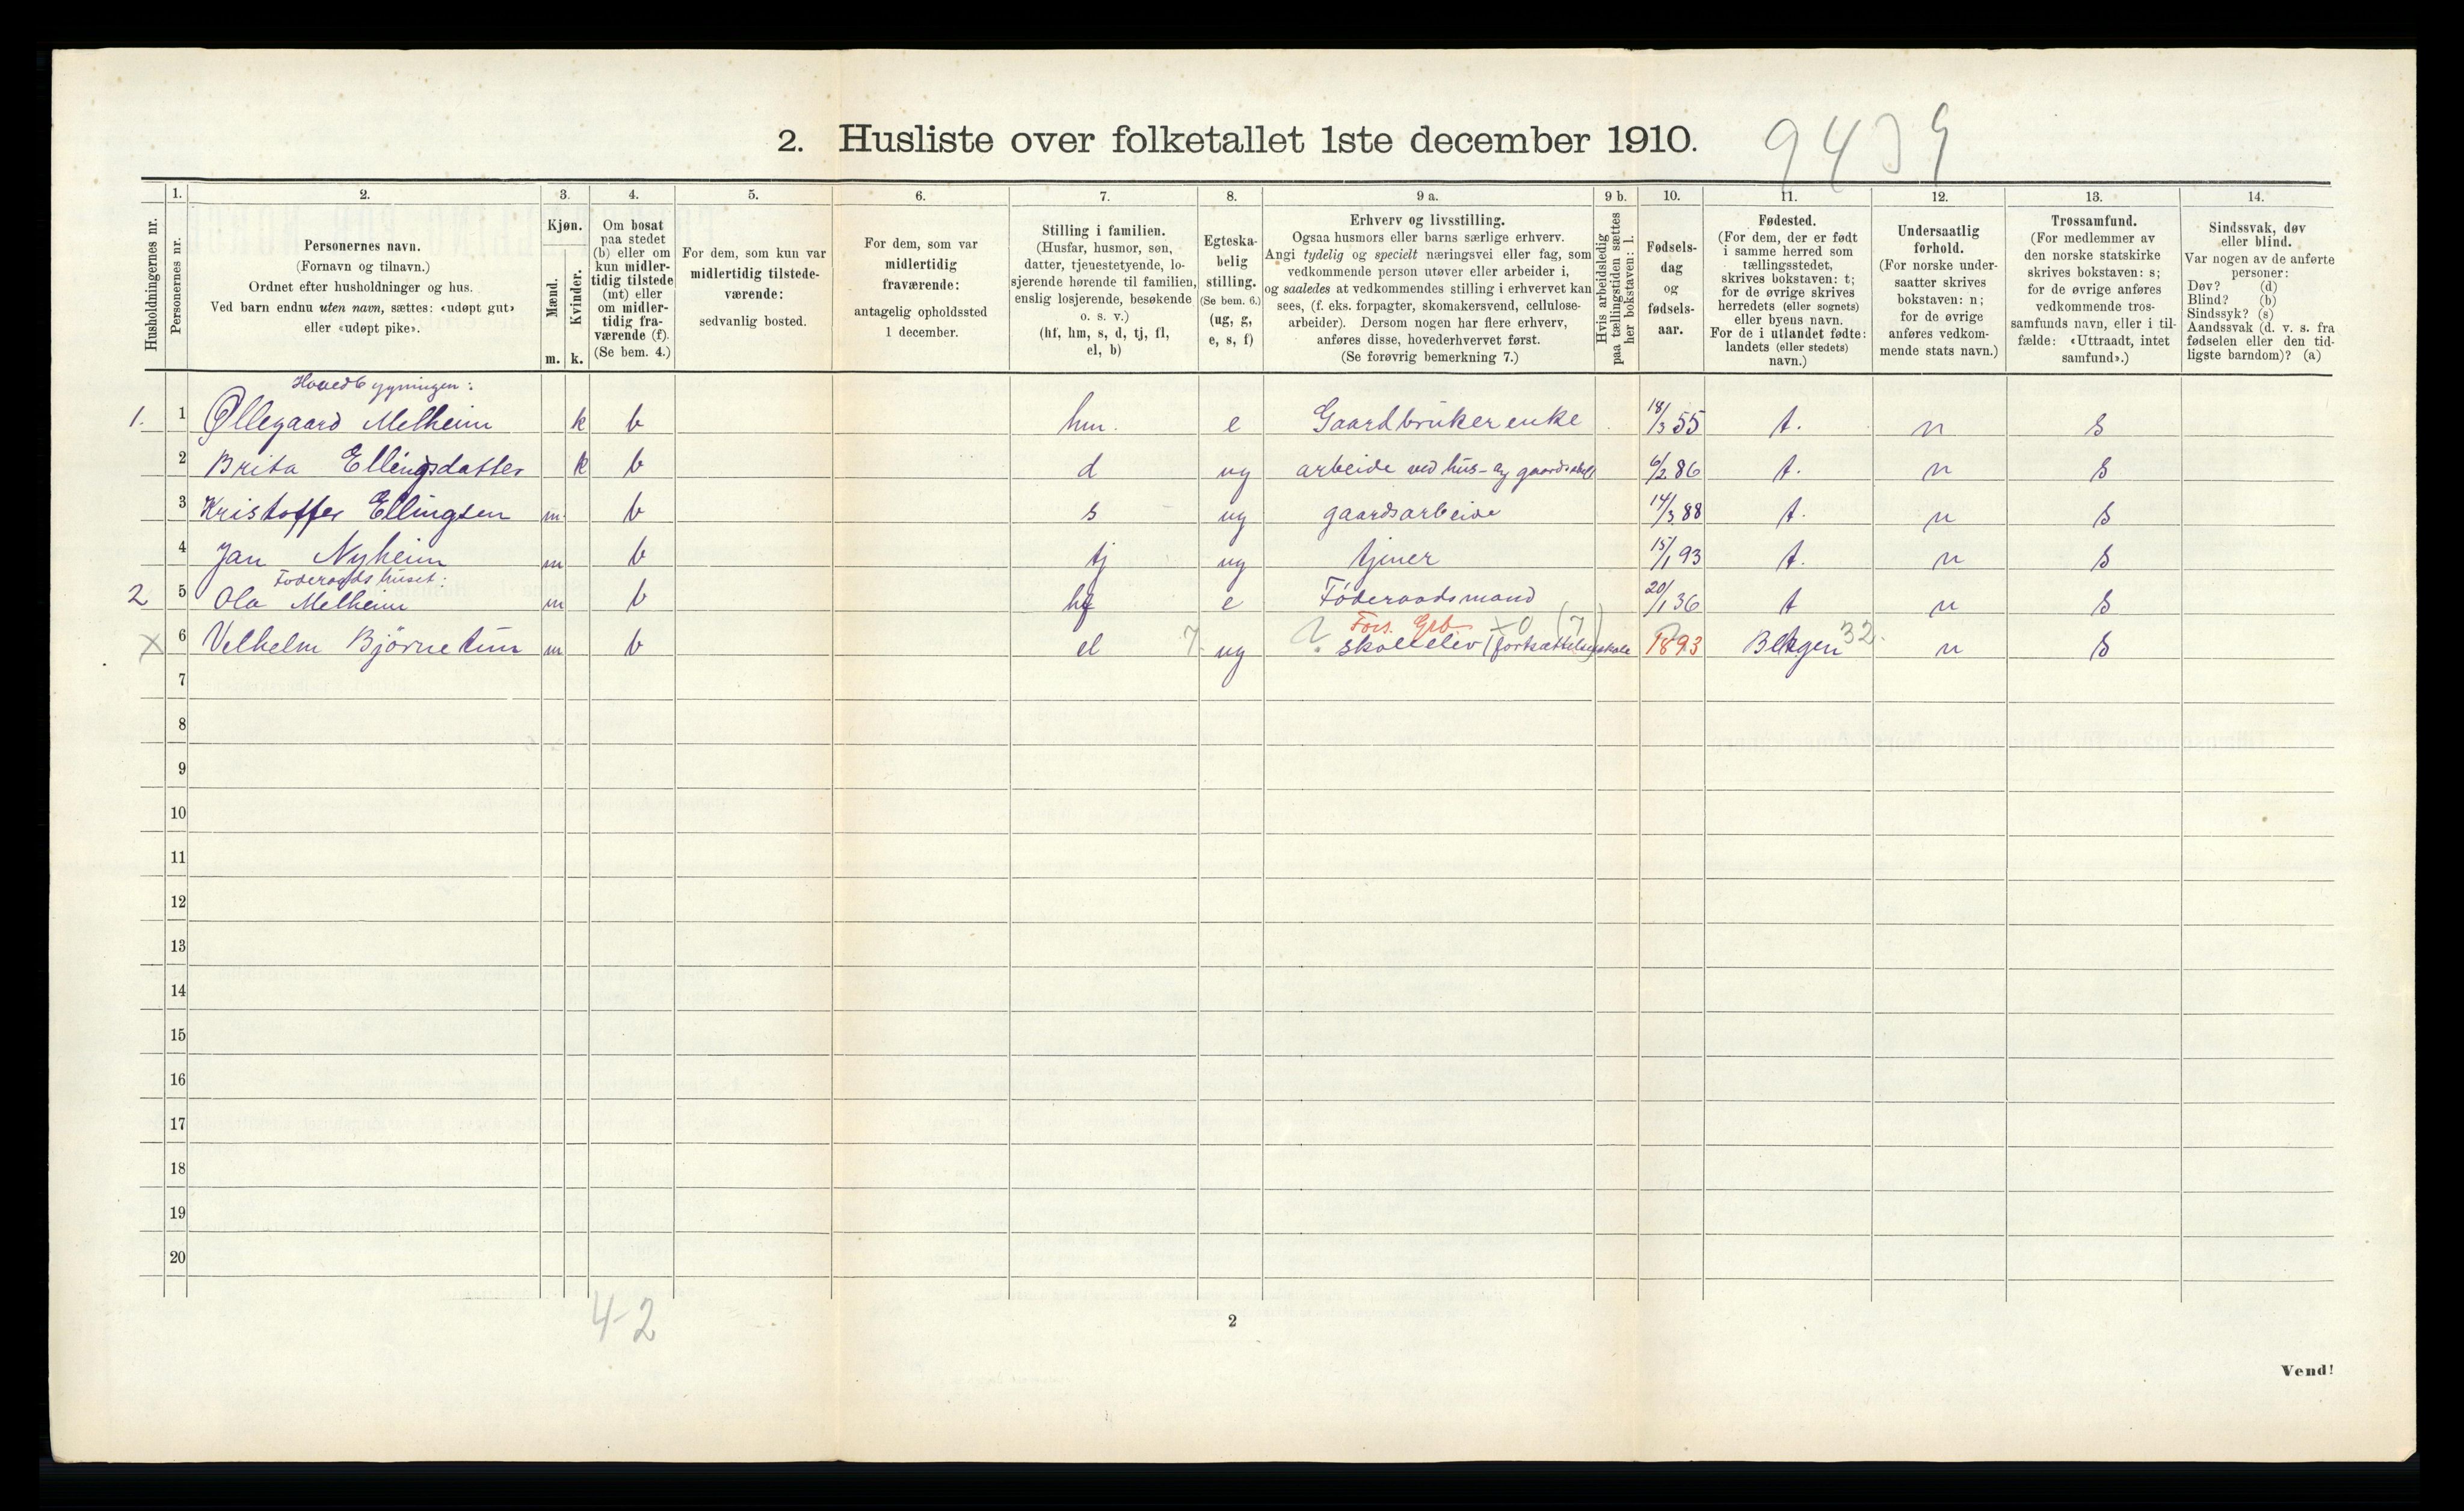 2. Husliste over folketallet 1ste december 1910.
9439
Husholdningernes nr.
1.
Personernes nr.
2.
Personernes navn.
(Fornavn og tilnavn.)
Ordnet efter husholdninger og hus.
Ved barn endnu uten navn, sættes: «udøpt gut»
eller «udøpt pike».
3.
Kjøn.
Mænd.
Kvinder.
m. k.
4.
Om bosat
paa stedet
(b) eller om
kun midler-
tidig tilstede
(mt) eller
om midler-
tidig fra-
værende (f).
(Se bem. 4.)
5.
For dem, som kun var
midlertidig tilstede-
værende:
sedvanlig bosted.
6.
For dem, som var
midlertidig
fraværende:
antagelig opholdssted
1 december.
7.
Stilling i familien.
(Husfar, husmor, søn,
datter, tjenestetyende, lo-
sjerende hørende til familien,
enslig losjerende, besøkende
o. s. v.)
(hf, hm, s, d, tj, fl,
el, b)
8.
Egteska-
belig
stilling.
(Se bem. 6.)
(ug, g,
e, s, f)
9 a.
Erhverv og livsstilling.
Ogsaa husmors eller barns særlige erhverv.
Angi tydelig og specielt næringsvei eller fag, som
vedkommende person utøver eller arbeider i,
og saaledes at vedkommendes stilling i erhvervet kan
sees, (f. eks. forpagter, skomakersvend, cellulose-
arbeider). Dersom nogen har flere erhverv,
anføres disse, hovederhvervet først.
(Se forøvrig bemerkning 7.)
9 b.
Hvis arbeidsledig
paa tællingstiden sættes
her bokstaven: l.
10.
Fødsels-
dag
og
fødsels-
aar.
11.
Fødested.
(For dem, der er født
i samme herred som
tællingsstedet,
skrives bokstaven: t;
for de øvrige skrives
herredets (eller sognets)
eller byens navn.
For de i utlandet fødte:
landets (eller stedets)
navn.)
12.
Undersaatlig
forhold.
(For norske under-
saatter skrives
bokstaven: n;
for de øvrige
anføres vedkom-
mende stats navn.)
13.
Trossamfund.
(For medlemmer av
den norske statskirke
skrives bokstaven: s;
for de øvrige anføres
vedkommende tros-
samfunds navn, eller i til-
fælde: «Uttraadt, intet
samfund».)
14.
Sindssvak, døv
eller blind.
Var nogen av de anførte
personer:
Døv? (d)
Blind? (b)
Sindssyk? (s)
Aandssvak (d. v. s. fra
fødselen eller den tid-
ligste barndom)? (a)
Hovedbygningen:
1. 1 Øllegaard Melheim k b hm. e Gaardbrukerenke 18/3 55 t. n s
2 Brita Ellingsdatter k b d ug arbeide ved hus- og 6/2 86 t. n s
3 Kristoffer Ellingsen m b s ug gaardsarbeide 14/3 88 t. n s
4 Jan Nyheim m b tj ug tjener 15/1 93 t. n s
Føderaadshuset:
2 5 Ola Melheim m b hf e Føderaadsmand 20/1 36 t n s
Fors. Grb. x0 (7)
x 6 Velhelm Björnetun m b el 7 ug ? skoleelev (fortsættelsesskole 1893 Bergen 32 n s
7
8
9
10
11
12
13
14
15
16
17
18
19
20
4-2
2
Vend!